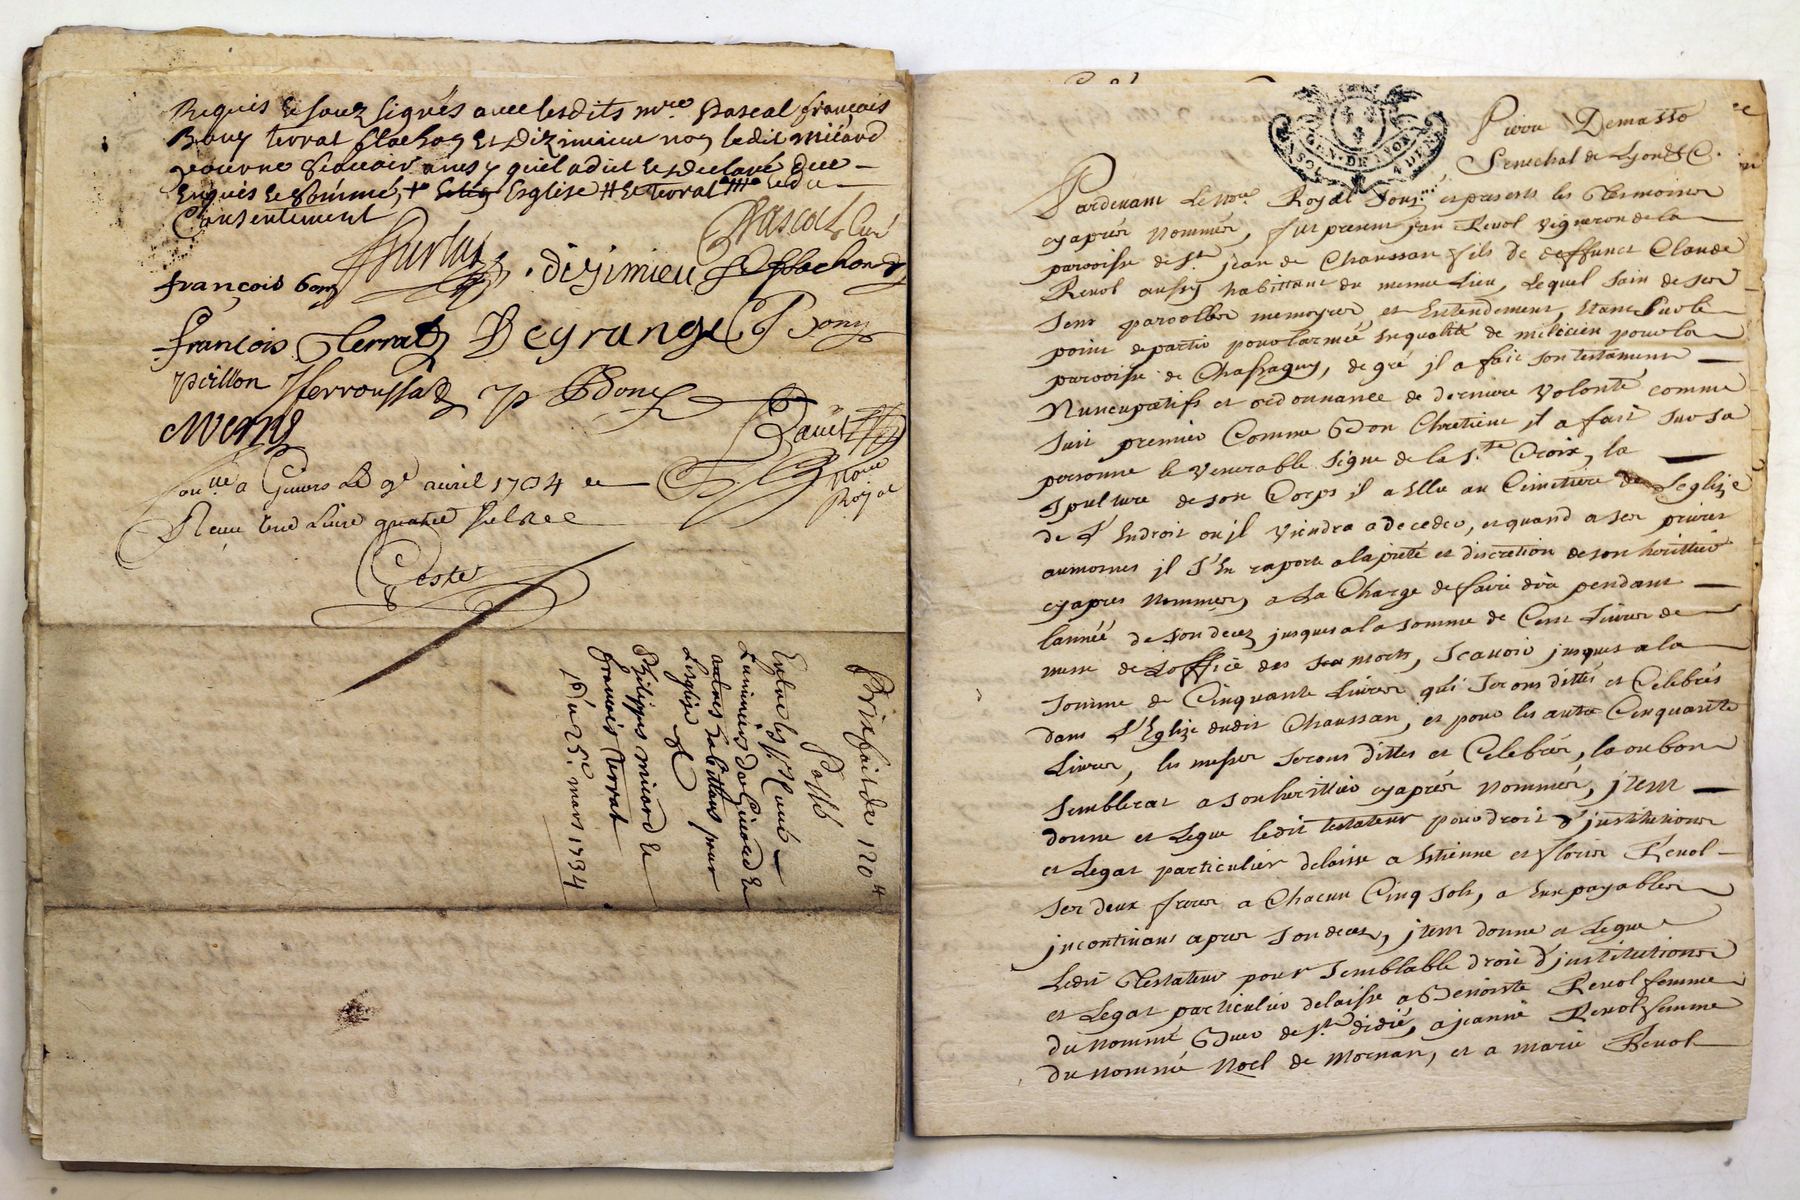 Requis & souz signés avec lesdits mre. Pascal françois
Bony terrat flachon et dizimieu non ledit micard
pour ne scavoir a
quil a dit et declaré de ce
Enquis et sommé, Esglise # et terrat
Consentement
Pascal Curé
françois bony
dizimieu Flachon
françois Terrat Degrange Bony
perillon ferroussat P Bony
Con.lle a Givors Le 9e avril 1704
Receu une livre quatre sols
Coste
Royal
Prixfait de 120 lt
Passé
Entre les srs. Curé
Luminiers de Givord &
autres habittans pour
Lesglise
& philippe micard &
françois terrat
Du 25e. mars 1734
Pierre Demasso
Senechal de Lyon &c.
GEN. DE LYON
Pardevant Le nore. Royal souz.né et presents les Tesmoins
cyaprés nommés, fut present jean Revol vigneron de la
parroisse de st. jean de Chaussan fils de deffunct Claude
Revol aussy habittant du mesme Lieu, Lequel sain de ses
sens parolles memoyres et Entendement, Etant sur le
point de partir pour larmée en qualité de milicien pour la
parroisse de Chassagny, de gré jl a fait son testament
Nuncupatifs et ordonnance de derniere volonté comme
suit premier Comme Bon Chretient jl a fait sur sa
personne le venerable signe de la ste. Croix, la
sepulture de son Corps jl a Ellu au Cimetiere de Leglize
de L'Endroit ou jl viendra a deceder, et quand a ses prieres
aumosnes jl s'En raporte a la pieté et discretion de son herittier
cyapres nommés, a La Charge de faire dire pendant
lannée de son decez jusques a la somme de Cent Livres de
messe de Loffice des morts, scavoir jusques a la
somme de Cinquante Livres qui seront dittes et Celebrés
dans L'Eglize dudit Chaussan, et pour les autre Cinquante
Livres, les messes seront dittes et Celebrés, la ou bon
semblerat a son herittier cyaprés nommés, jtem
donne et Legue ledit testateur pour droit d'justitution
et Legat particulier delaisse a Estienne et fleury Revol
ses deux freres a Chacun Cinq sols, a Eux payables
jncontinant apres son decez, jtem donne et Legue
Ledit Testateur pour semblable droit d'justitution
et Legat particulier delaisse a Benoiste Revol femme
du nommé Buer de st. didié, a jeanne Revol femme
du nommé Noel de Mornan, et a marie Revol